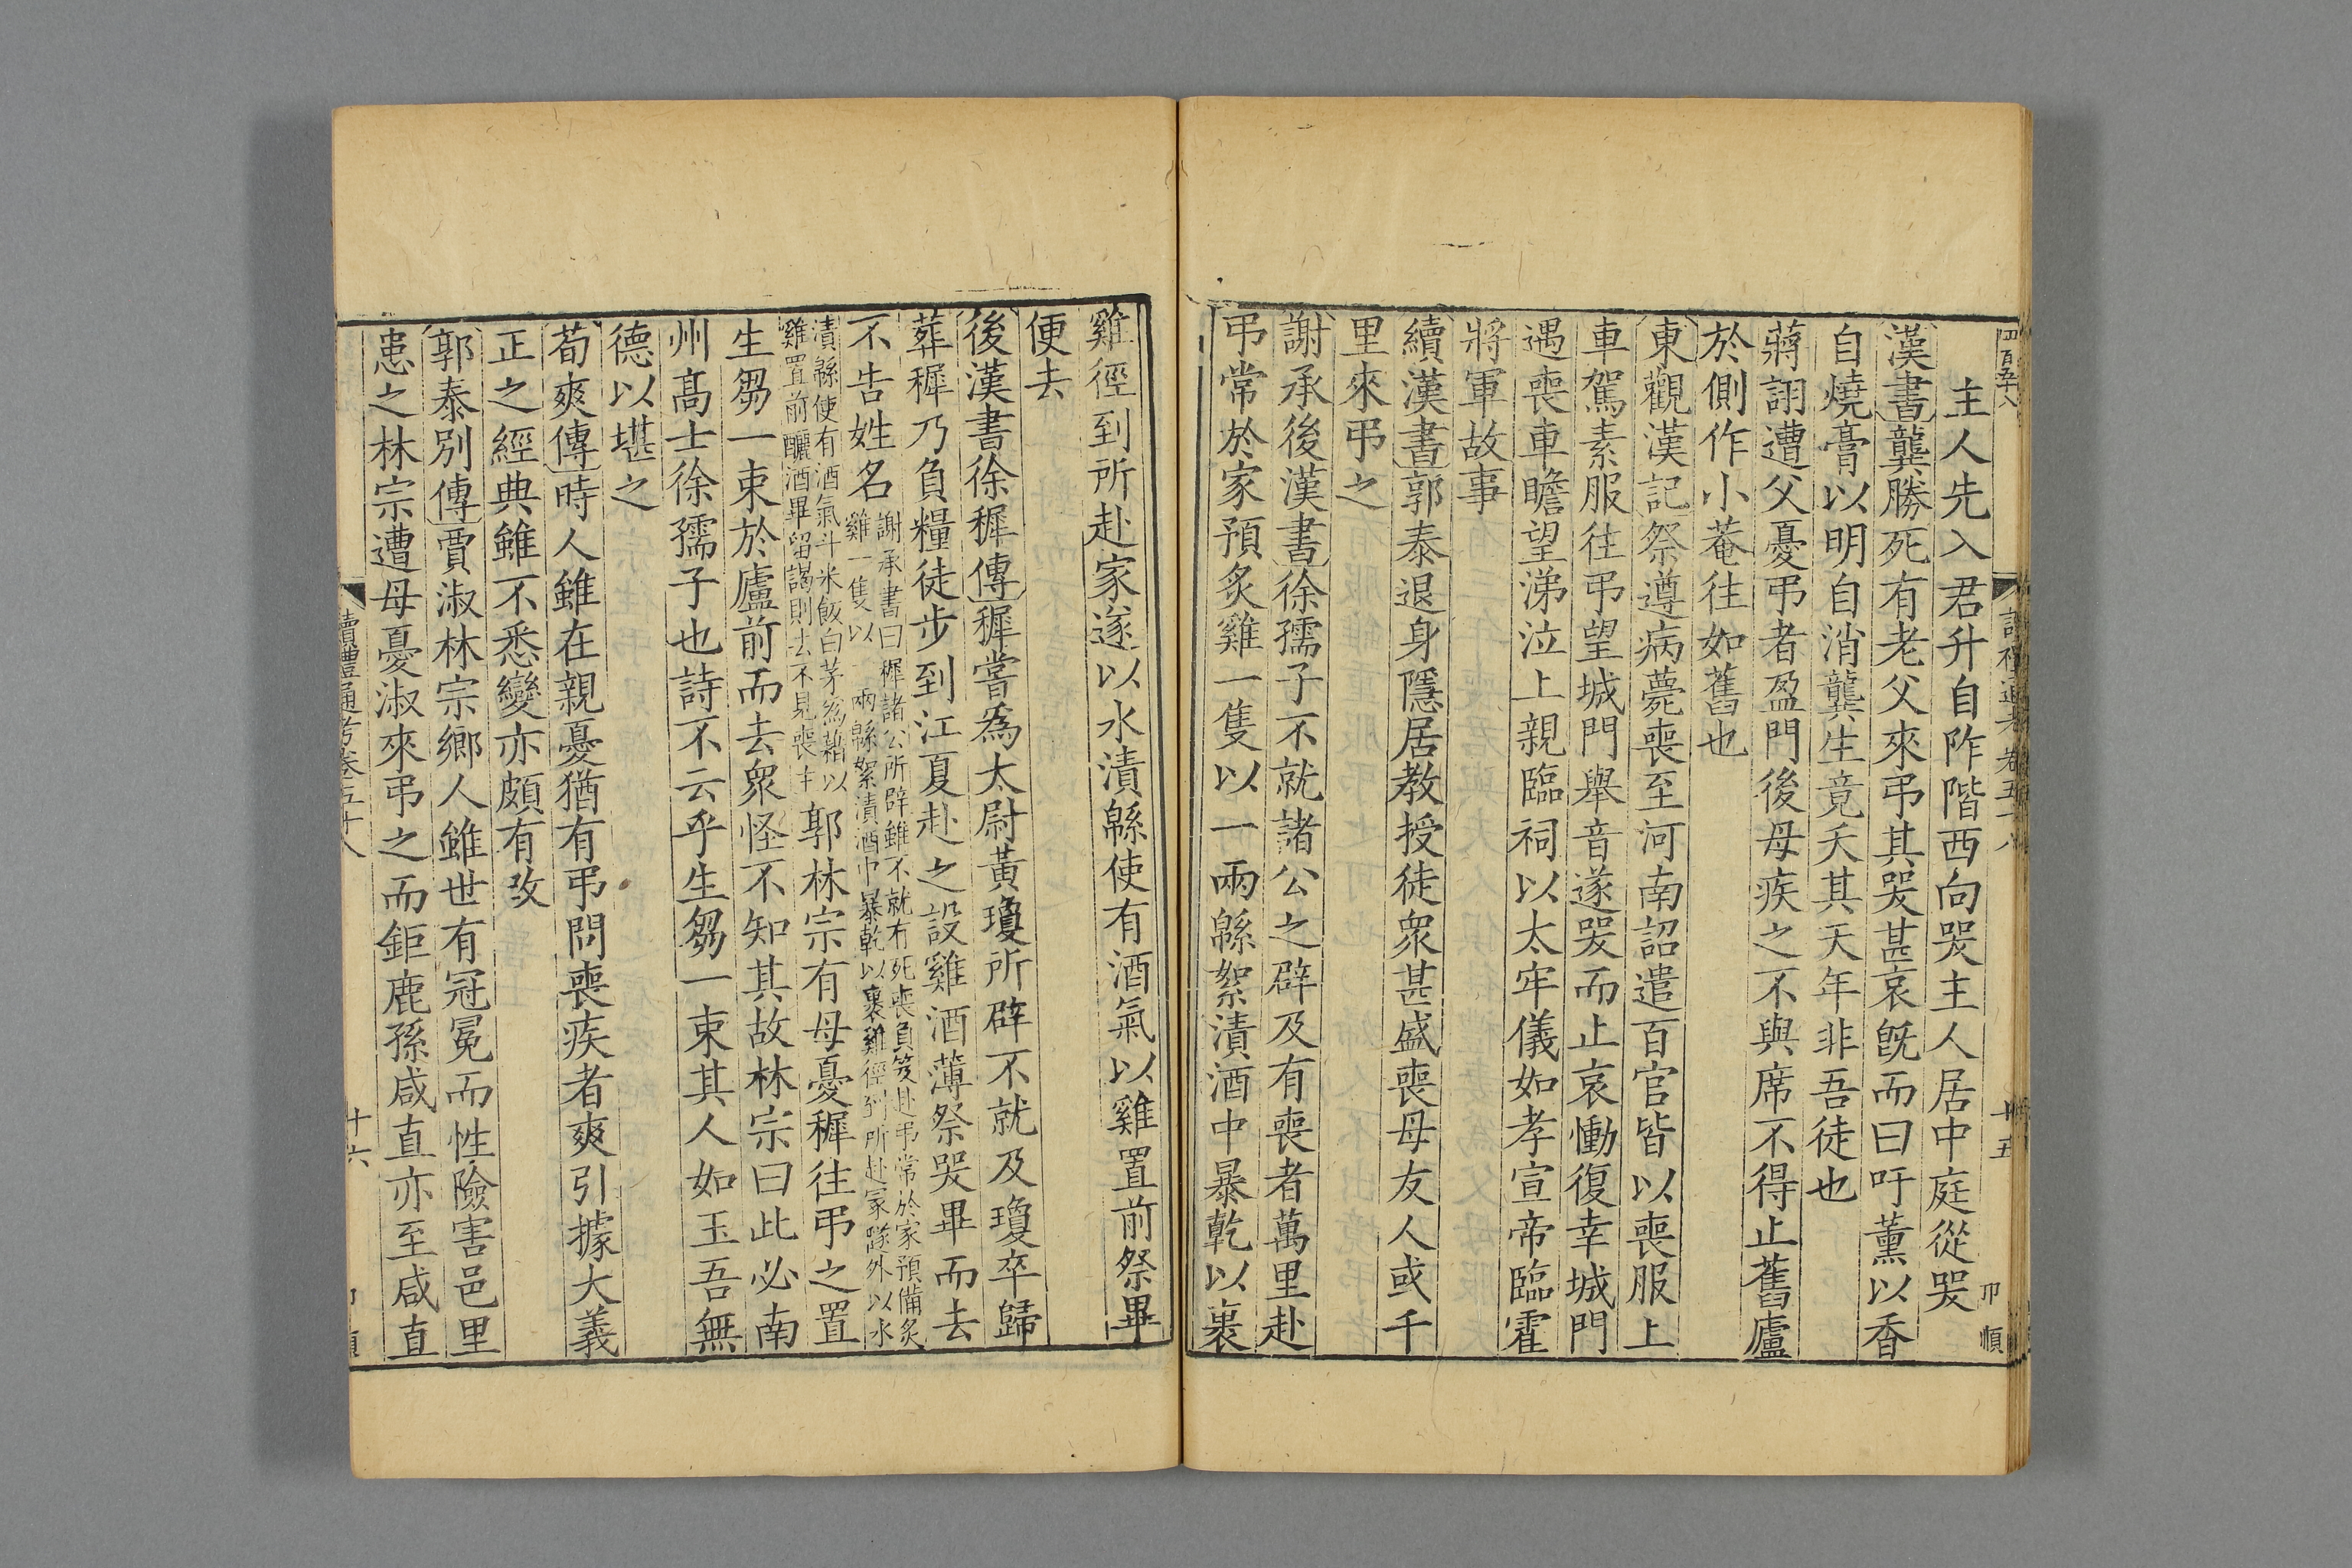 四百五八
讀禮通考卷五十八
十五
卬順
主人先入君升自阼階西向哭主人居中庭從哭
漢書龔勝死有老父來弔其哭甚哀旣而曰吁薰以香
自燒膏以明自消龔生竟夭其天年非吾徒也
蔣詡遭父憂弔者盈門後母疾之不與席不得止舊廬
於側作小菴往如舊也
東觀漢記祭遵病薨喪至河南詔遣百官皆以喪服上
車駕素服往弔望城門舉音遂哭而止哀慟復幸城門
遇喪車瞻望涕泣上親臨祠以太牢儀如孝宣帝臨霍
將軍故事
續漢書郭泰退身隱居教授徒衆甚盛喪母友人或千
里來弔之
謝承後漢書徐孺子不就諸公之辟及有喪者萬里赴
弔常於家預炙雞一隻以一兩緜絮漬酒中暴乾以裹
雞徑到所赴家遂以水漬緜使有酒氣以雞置前祭畢
便去
後漢書徐穉傳穉嘗爲太尉黃瓊所辟不就及瓊卒歸
葬穉乃負糧徒步到江夏赴之設雞酒薄祭哭畢而去
不告姓名謝承書曰穉諸公所辟雖不就有死喪負笈赴弔常於家預備炙
雞一隻以一兩緜絮漬酒中暴乾以裹雞徑到所赴冢隧外以水
漬緜使有酒氣斗米飯白茅爲藉以
雞置前釃酒畢留謁則去不見喪主郭林宗有母憂穉往弔之置
生芻一束於廬前而去衆怪不知其故林宗曰此必南
州高士徐孺子也詩不云乎生芻一束其人如玉吾無
德以堪之
荀爽傳時人雖在親憂猶有弔問喪疾者爽引據大義
正之經典雖不悉變亦頗有改
郭泰別傳賈淑林宗鄉人雖世有冠冕而性險害邑里
患之林宗遭母憂淑來弔之而鉅鹿孫咸直亦至咸直
讀禮通考卷五十八
十六